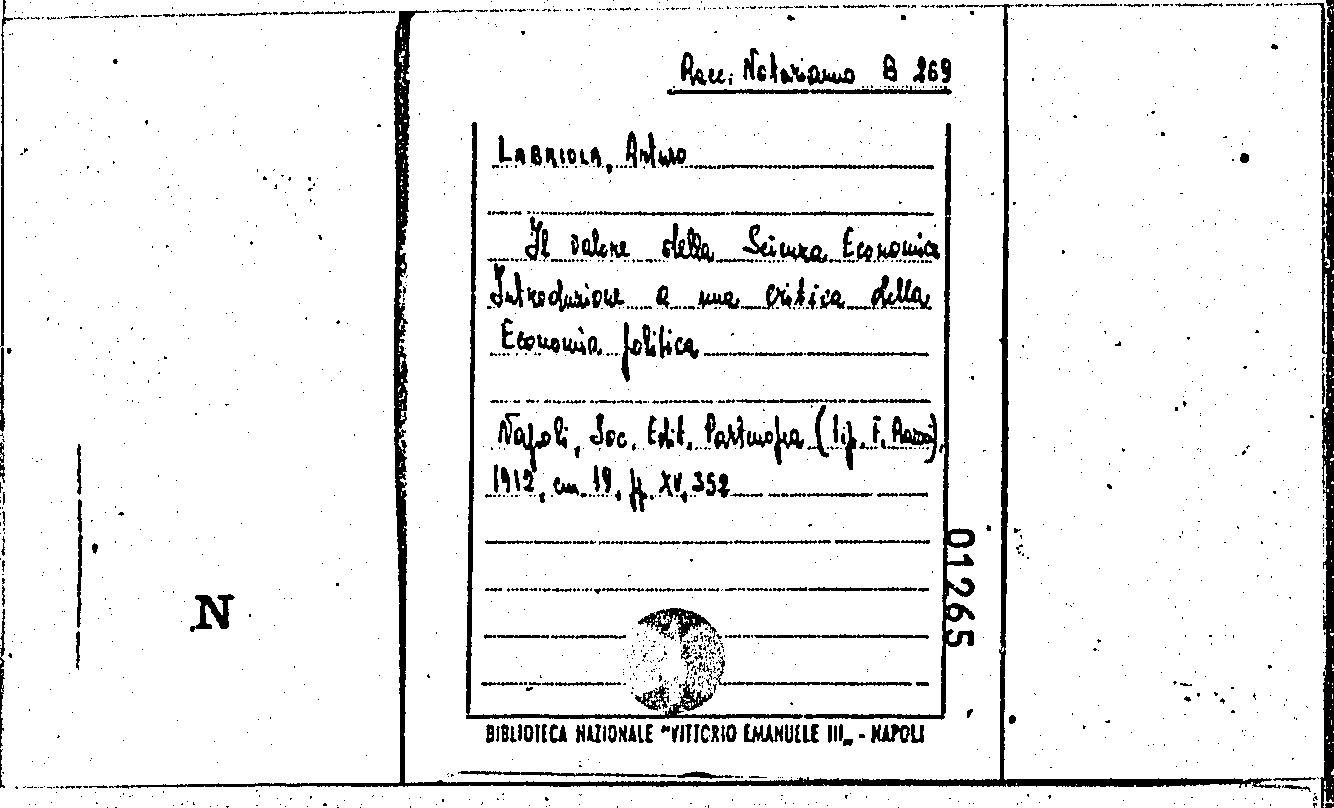 Racc. Notarianno B 269
LABRIOLA, Arturo
Il valore della Scienza Economica
Introduzione a una critica della
Economia politica
Napoli, Soc. Edit. Partenopea (tip. F. Razzi),
1912, cm. 19, pp. XV, 352
01265
N
BIBLIOTECA NAZIONALE "VITTORIO EMANUELE III„ - NAPOLI